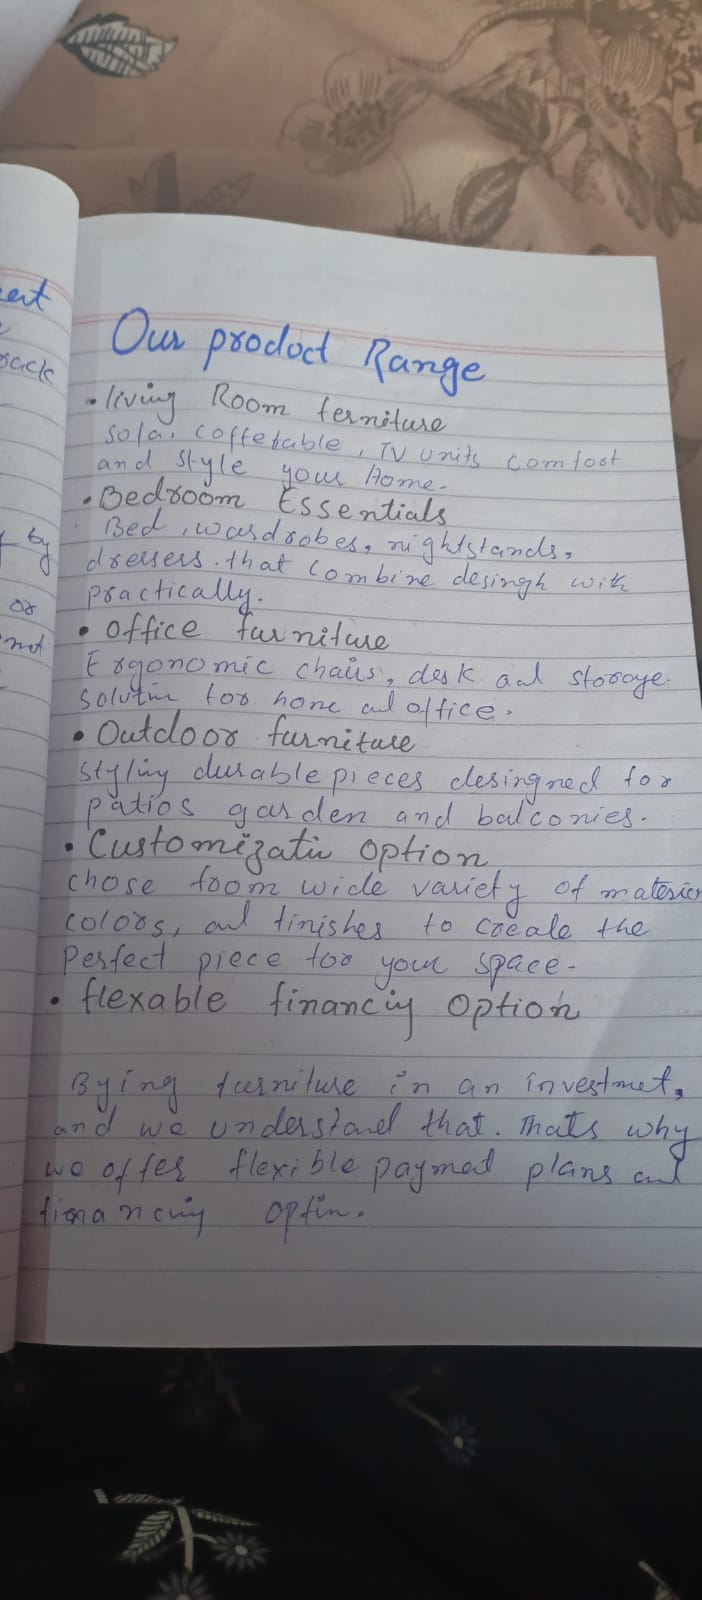 eet
back
by
or
not
Our product Range
• living Room ferniture
Sofa, coffetable, TV units comfort
and style your Home.
• Bedroom Essentials
Bed, wardrobes, nightstands,
dressers. that combine desingh with
practically.
• Office furniture
Ergonomic chairs, desk and storage.
Solution for home and office.
• Outdoor furniture
styling durable pieces desingned for
patios garden and balconies.
• Customization option
chose from wide variety of materic
colors, and finishes to create the
Perfect piece for your space-
• flexable financiy Option
Bying furniture in an investmet,
and we understand that. Thats why
we offer flexible payment plans and
financing option.